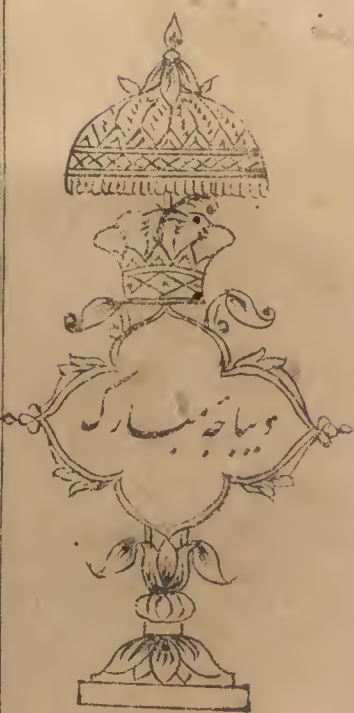 دیباچَہ مبارک